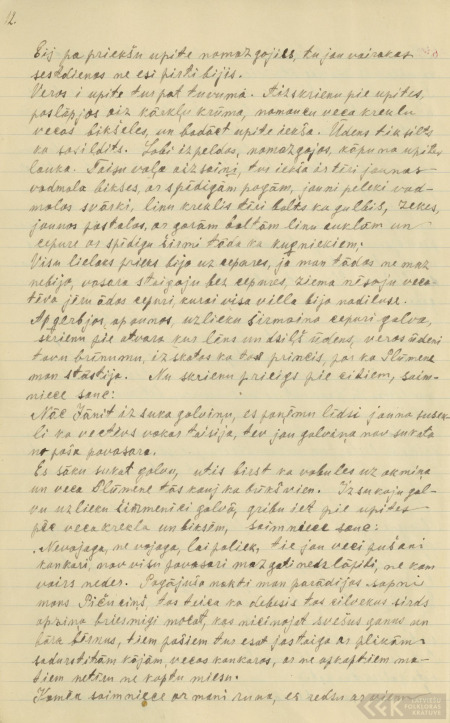 12.
Eij pa priekšu upite nomazgojies, tu jau vairakas
sesdienas ne esi pirti bijis.
Veros i upite tur pat tuvumā. Aizskrienu pie upites,
paslāpjos aiz kārklu krūma, nomaucu veca kreklu
vecas bikšeles, un badāct upite iekša. Ūdens tik silts
ka sasildits. Labi izpeldos, nomazgojos, kāpu no upites
lauka. Taisu vaļa aizsaini, tur iekša ir tiri jaunas
vadmala bikses, ar spīdigām pogām, jauni peleki vad-
malas svārki, linu krekls tiri balts ka gulbis, zekes,
jaunas pastalas, ar garām baltām linu auklām un
cepure ar spīdigu širmi tāda ka kugniekiem;
Visu lielaks prieks bijo uz cepures, jo man tādas ne maz
nebijo, vasara staigaju bez cepures, ziema nēsaju veca-
tēva jēru ādas cepuri, kurai visa villa bijo nodiluse.
Apgerbjos, apaunos, uzlieku širmaino cepuri galva,
skrienu pie atvara kur lāns un dziļš ūdens, veros ūdeni
tavu brīnumu, izskatos ka tas princis, par ko Plūmene
man stāstija. Nu skrienu priecigs pie citiem, saim-
niece sauc:
Nāc Jānit izsuka galviņu, es paņimu līdsi jauna suse-
kli ko vectēvs vakar taisija, tev jau galviņa nav sukata
no paša pavasara.
Es sāku sukat galvu, utis birst ka vabules uz akmiņa
un veca Plūmene tās kauj ka būkšvien. Izsukaju gal-
vu uzlieku širmenici galvā, gribu iet pie upites
pēc veca krekla un biksēm, saimniece sauc:
Nevajaga, ne vajaga, lai paliek, tie jau veci pušani
kankari, nav visu pavasari mazgati nedz lāpiti, ne kam
vairs neder. Pagājušo nakti man parādijos sapni
mans Pičuciņš, tas teica ka debesis tos cilvekus sirds
apziņa briesmigi mocat, kas nicinojat svešus ganus un
bāra bērnus, tiem pašiem tur esat jastaiga ar plikām
sadurstitām kājām, vecos kankaros, ar ne apkoptiem ma-
tiem netīru ne koptu miesu.
Kamēr saimniece ar mani runa, es redsu ar vienu
LFK
LATVIEŠU
FOLKLORAS
KRĀTUVE